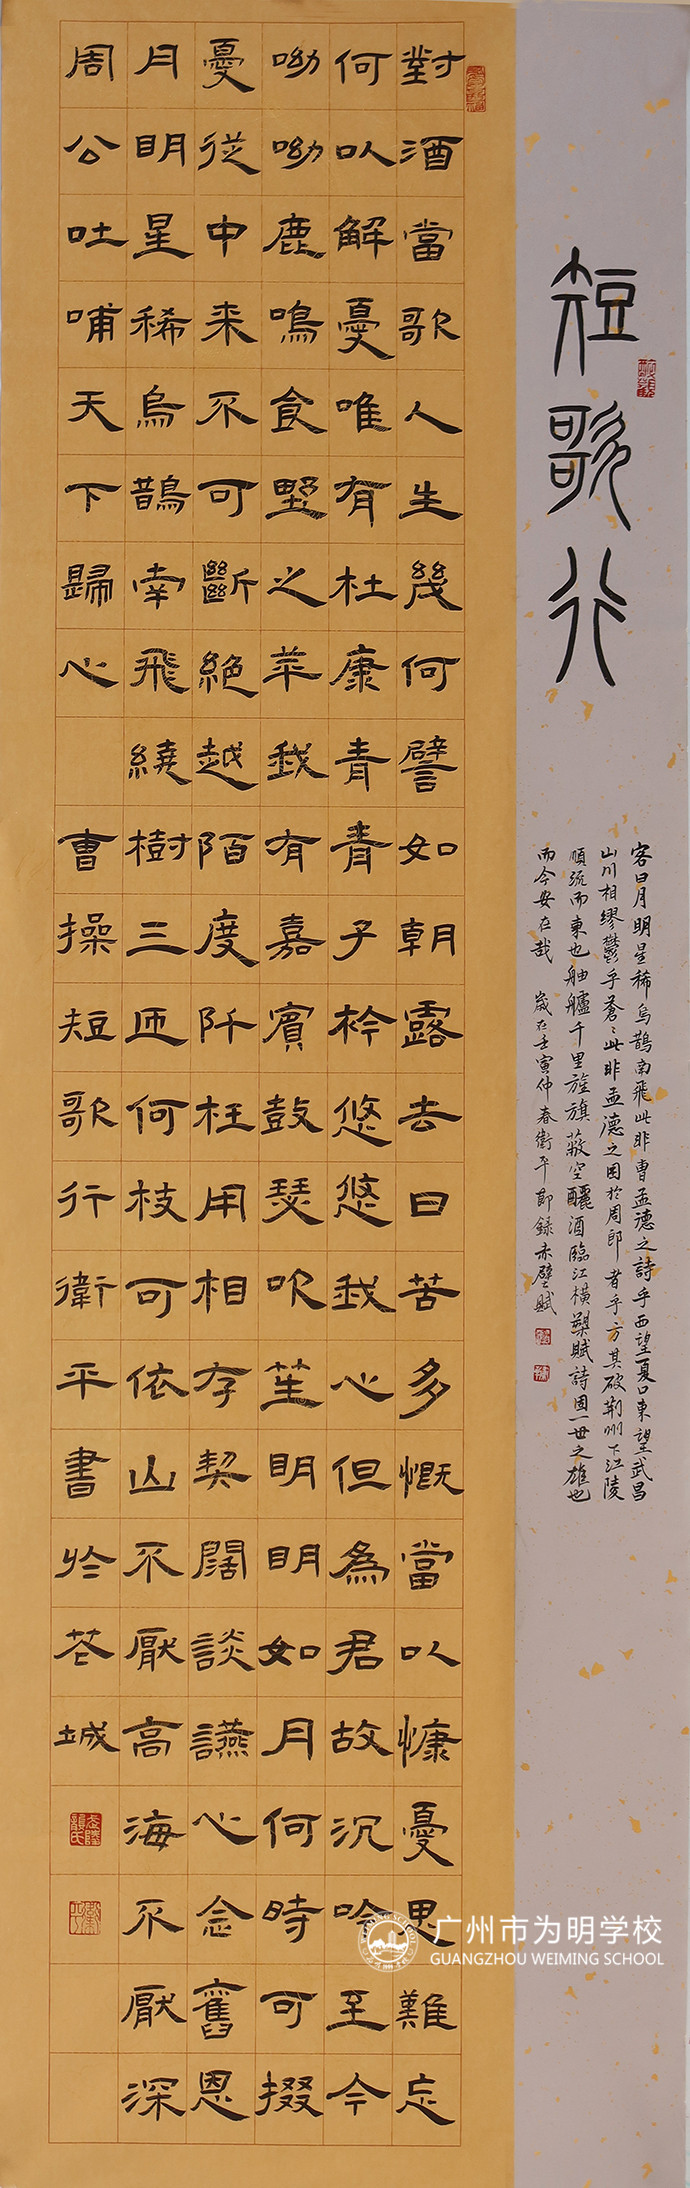 短歌行
客曰月明星稀烏鵲南飛此非曹孟德之詩乎西望夏口東望武昌
山川相缪鬱乎蒼〻此非孟德之困於周郎者乎方其破荆州下江陵
順流而東也舳艫千里旌旗蔽空釃酒臨江横槊賦詩固一世之雄也
而今安在哉 歲在壬寅仲春衛平節録赤壁賦
對酒當歌人生幾何譬如朝露去日苦多慨當以慷憂思難忘
何以解憂唯有杜康青青子衿悠悠我心但為君故沉吟至今
呦呦鹿鳴食墅之苹我有嘉賓鼓瑟吹笙明明如月何時可掇
憂從中来不可斷絶越陌度阡枉用相存契闊談讌心念舊恩
月明星稀烏鵲南飛繞樹三匝何枝可依山不厭高海不厭深
周公吐哺天下歸心 曹操短歌行衛平書於花城
广州市为明学校
GUANGZHOU WEIMING SCHOOL